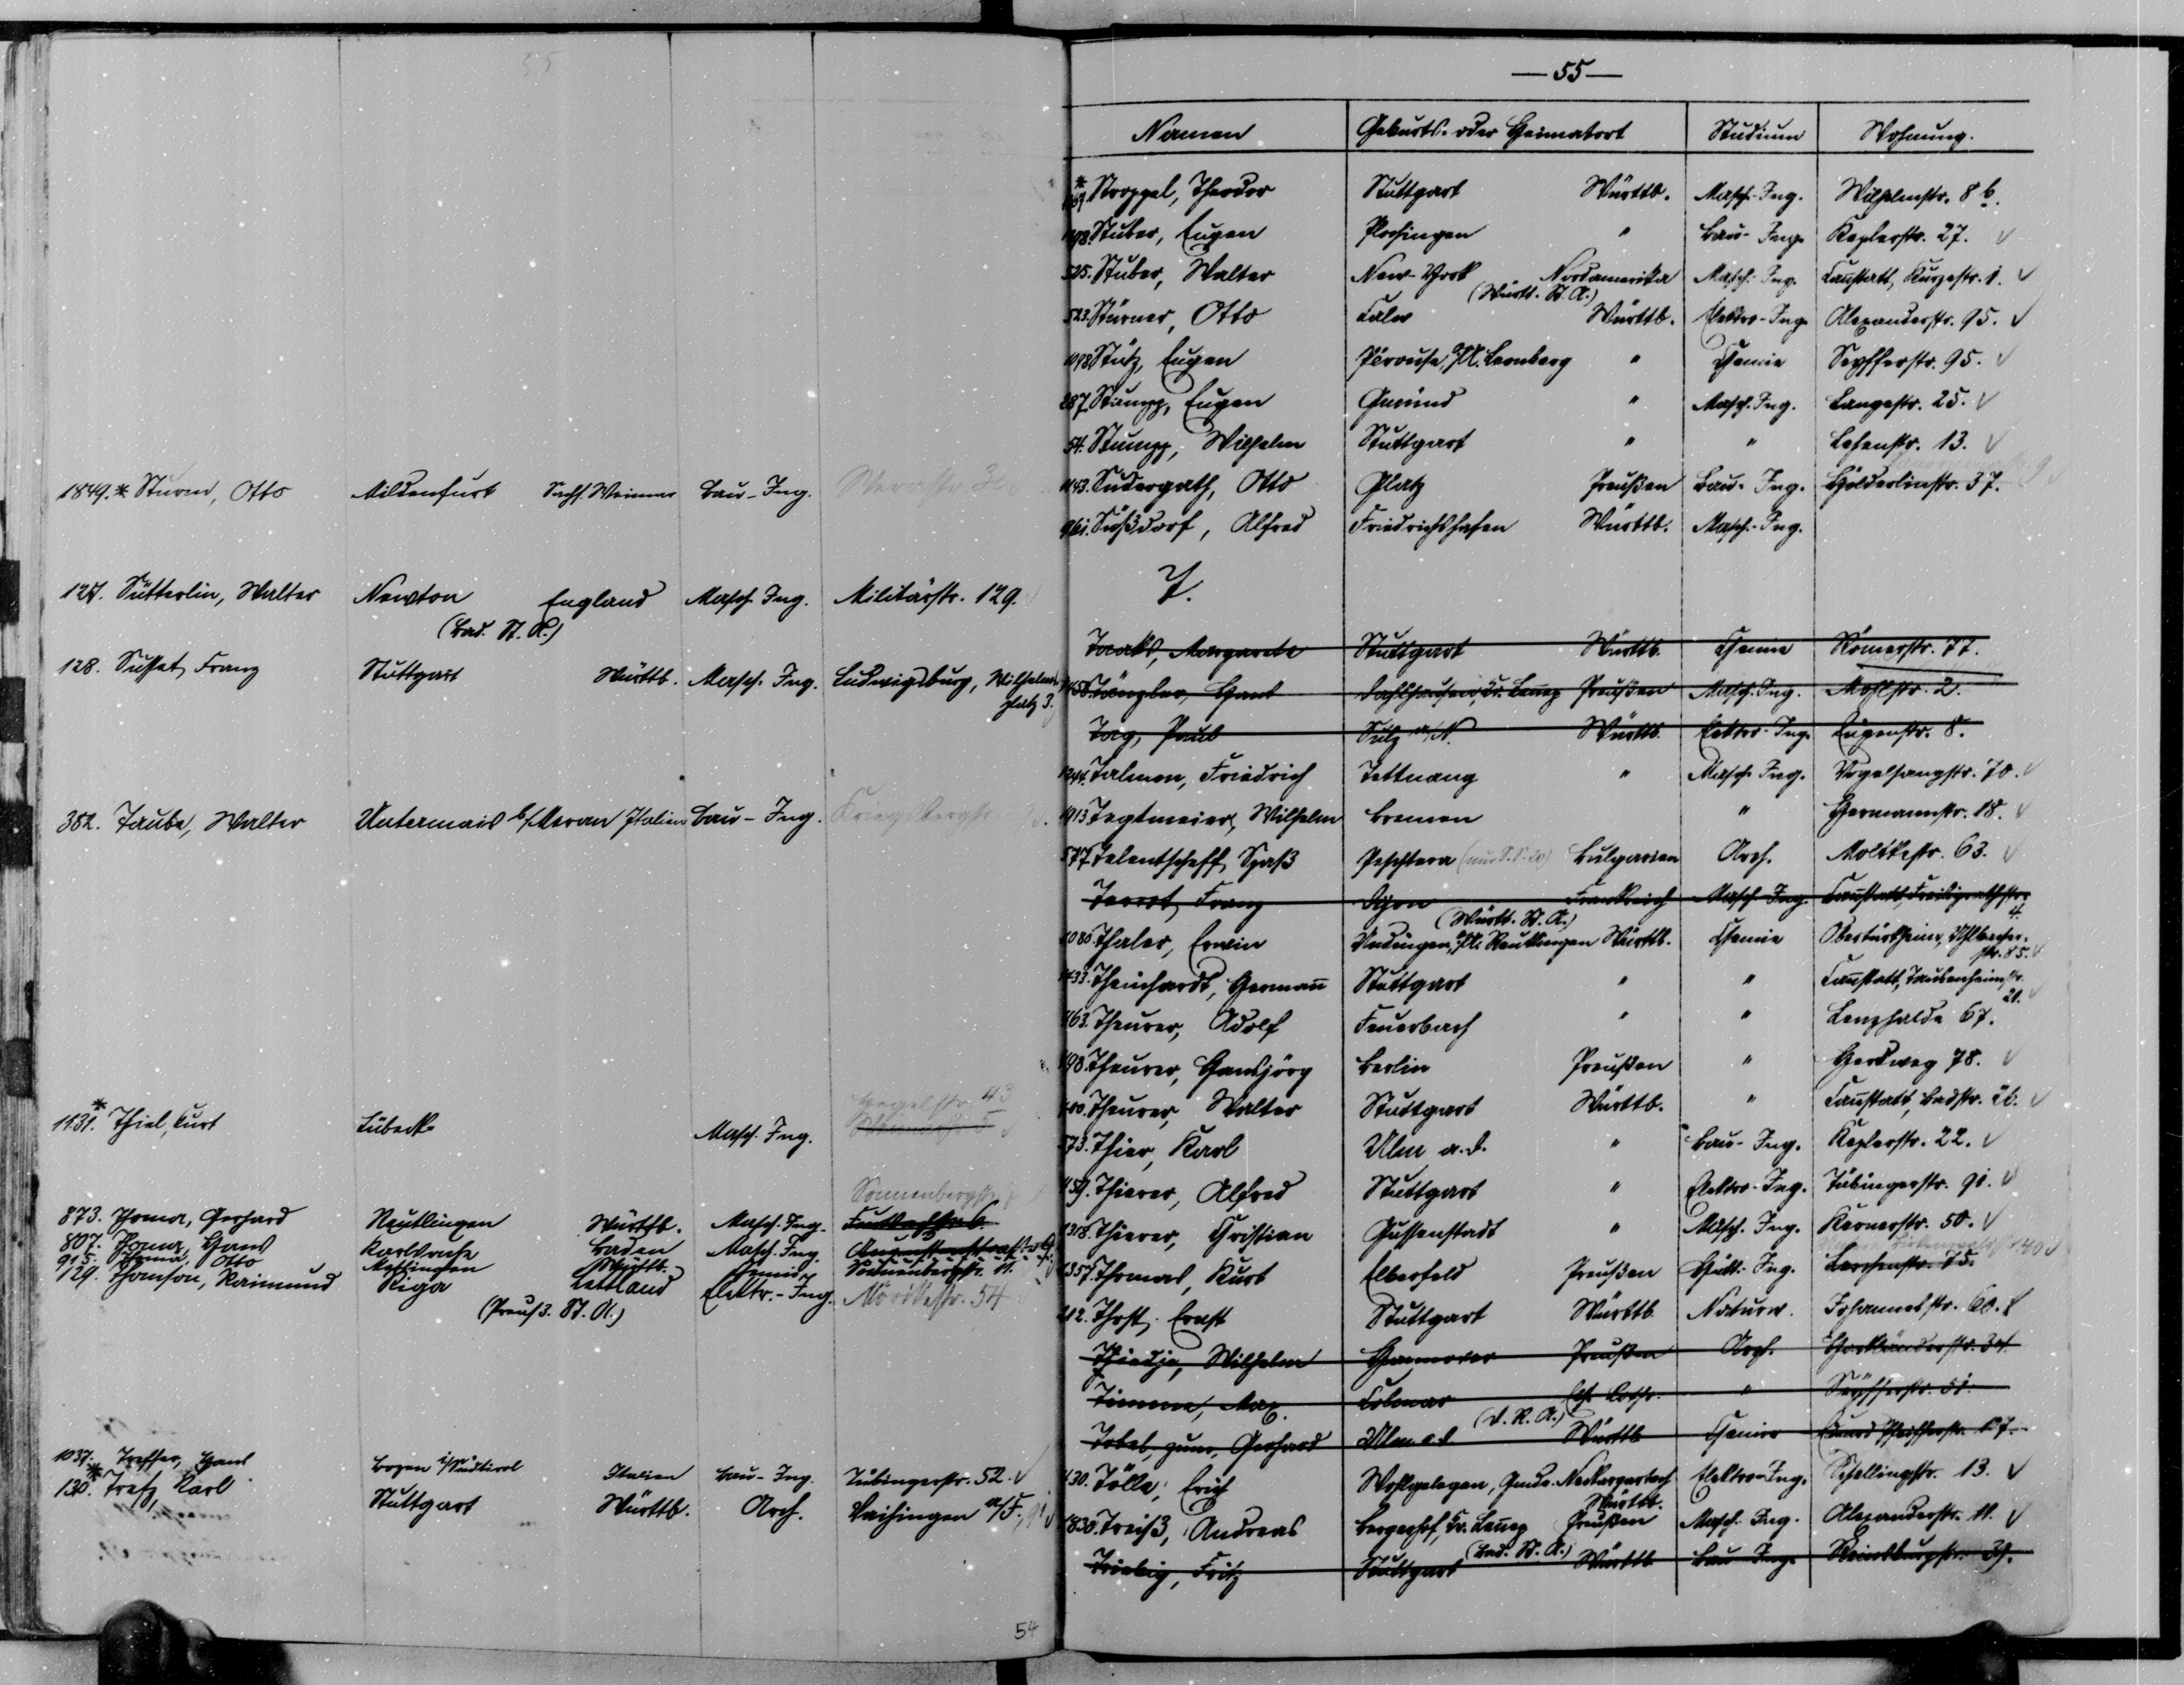 1849.* Sturm, Otto Mildenfurt Sachs. Weimar Bau-Ing. Werastr. 30
127. Sütterlin, Walter Newton England Masch. Ing. Militärstr. 129.
(Bad. St. A.)
128. Susset, Franz Stuttgart Württb. Masch. Ing. Ludwigsburg, Wilhelms-
platz 3.
352. Taube, Walter Untermais b/Meran Italien Bau-Ing.
1131.* Thiel, Kurt Lübeck Masch. Ing. Hegelstr. 43
873. Thoma, Gerhard Reutlingen Württb. Masch. Ing. Sonnenbergstr.
807. Thoma, Hans Karlsruhe Baden Masch. Ing.
915. Thoma, Otto Württb. Chemie Sonnenbergstr. 11.
129. Thomson, Raimund Riga Lettland Elektr.-Ing. Mörikestr. 54
(Preuß. St. A.)
1037. Treffer, Hans Bozen i/Südtirol Italien Bau-Ing. Tübingerstr. 52.
130.* Trefz, Karl Stuttgart Württb. Arch. Vaihingen a/F.,
54
— 55 —
Namen Geburts- oder Heimatort Studium Wohnung.
* Stroppel, Theodor Stuttgart Württb. Masch.-Ing. Wilhelmstr. 8 b.
Stuber, Eugen Plochingen " Bau-Ing. Keplerstr. 27.
525. Stuber, Walter New-York Nordamerika Masch.-Ing. Cannstatt, Kurzestr. 1.
(Württ. St. A.)
523. Stürner, Otto Calw Württb. Elektro-Ing. Alexanderstr. 95.
1098. Stütz, Eugen Pérouse, O/A. Leonberg " Chemie Seyfferstr. 95.
287. Stumpp, Eugen Gmünd " Masch. Ing. Langestr. 25.
54. Stumpp, Wilhelm Stuttgart " " Lehenstr. 13.
1143. Sudergath, Otto Glatz Preußen Bau-Ing. Hölderlinstr. 37.
961. Süßdorf, Alfred Friedrichshafen Württb. Masch.-Ing.
T.
Taaks, Margarete Stuttgart Württb. Chemie Römerstr. 77.
Tänzler, Hans Dahlhausen, Kr. Lennep Preußen Masch. Ing. Mohlstr. 2.
Tag, Paul Sulz a/N. Württb. Elektro-Ing. Eugenstr. 8.
1244. Talmon, Friedrich Tettnang " Masch. Ing. Vogelsangstr. 70.
1913. Tegtmeier, Wilhelm Bremen " Hermannstr. 18.
577. Telentscheff, Spaß Peschtera Bulgarien Arch. Moltkestr. 63.
Terrot, Franz Dijon Frankreich Masch. Ing. Cannstatt, Freiligrathstr.
(Württ. St. A.) 4.
1080. Thaler, Erwin Undingen, O/A. Reutlingen Württb. Chemie Obertürkheim, Uhlbacher-
str. 85.
1433. Theinhardt, Hermann Stuttgart " " Cannstatt, Taubenheimstr.
21.
Theurer, Adolf Feuerbach " " Lenzhalde 67.
Theurer, Hansjörg Berlin Preußen " Herdweg 78.
Theurer, Walter Stuttgart Württb. " Cannstatt, Badstr. 26.
573. Thier, Karl Ulm a.d. " Bau-Ing. Keplerstr. 22.
Thierer, Alfred Stuttgart " Elektro-Ing. Tübingerstr. 91.
1318. Thierer, Christian Gussenstadt " Masch. Ing. Kernerstr. 50.
1357. Thomas, Kurt Elberfeld Preußen Hütt.-Ing. Lerchenstr. 75.
212. Thost, Ernst Stuttgart Württb. Naturw. Johannesstr. 60.
Thiedje, Wilhelm Hannover Preußen Arch. Hackländerstr. 34
Timme, Max Colmar Els. Lothr. " Seyfferstr. 51.
(D. R. A.)
Tobel, zum, Gerhard Ulm a.d. Württb. Chemie
430. Tölle, Erich Wohlgelegen, Gmde. Neckargartach Elektro-Ing. Schellingstr. 13.
Württb.
1830. Treiß, Andreas Bergerhof, Kr. Lennep Preußen Masch.-Ing. Alexanderstr. 11.
(Bad. St. A.)
Triebig, Fritz Stuttgart Württb. Bau-Ing. Reinsburgstr. 39.